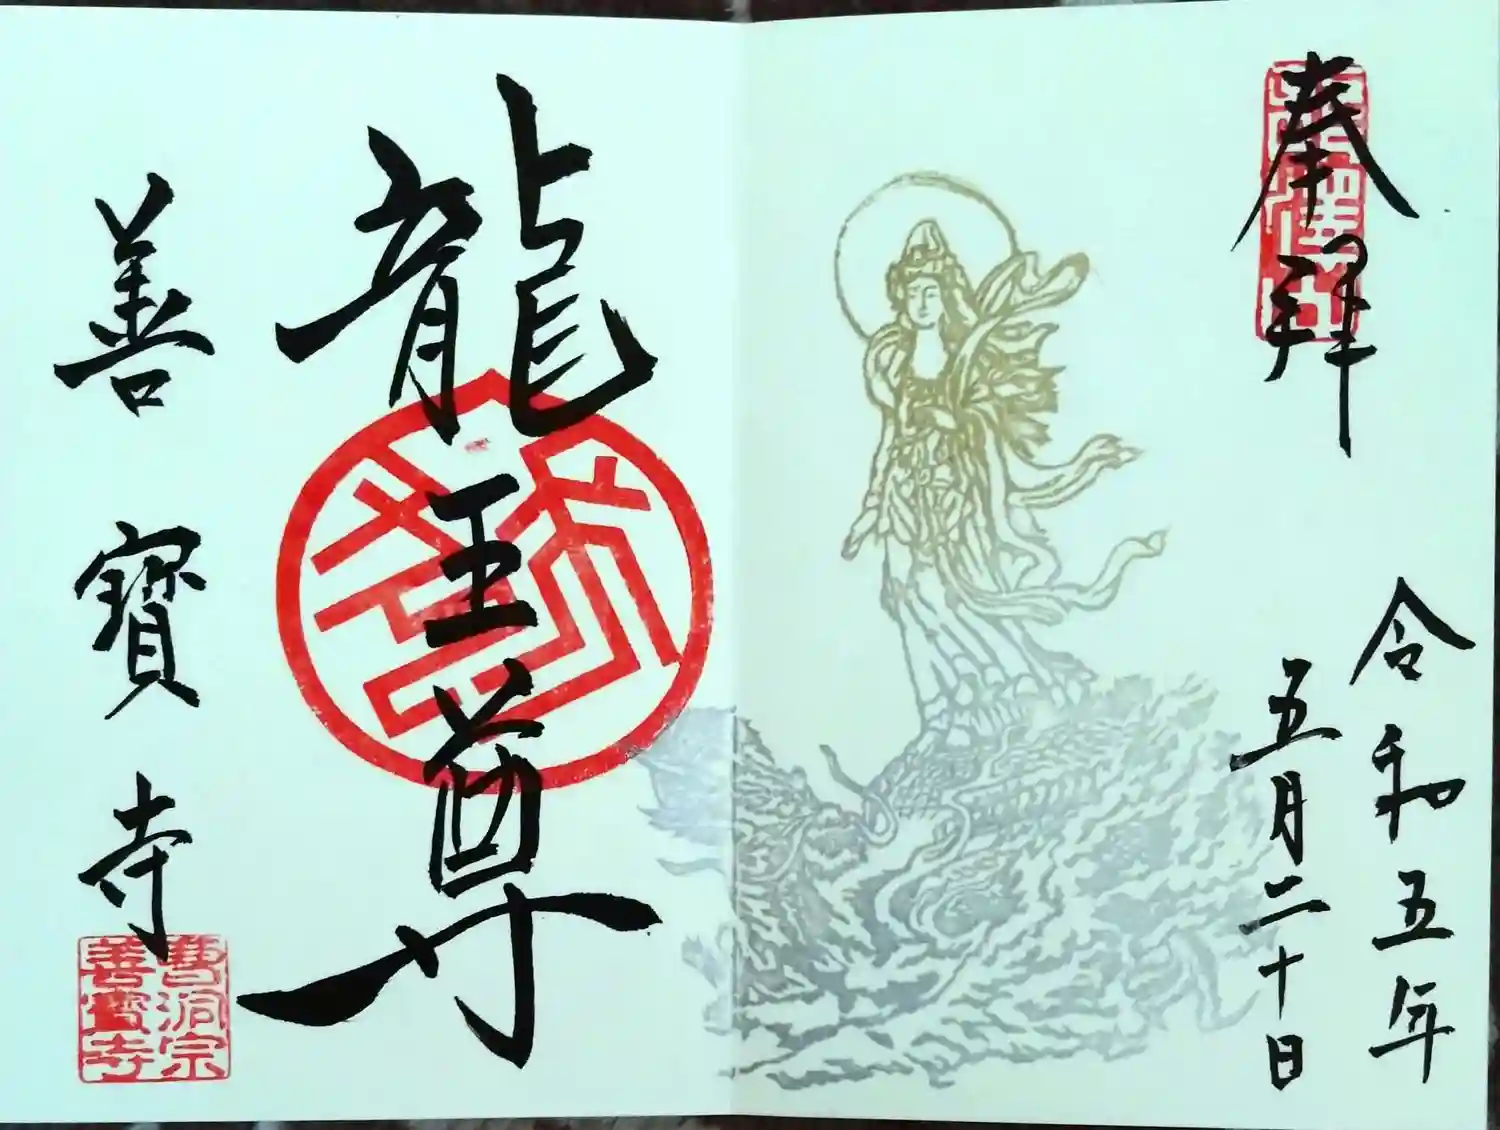 奉拝
令和五年
五月二十日
龍王尊
善寶寺
曹洞宗
善寶寺